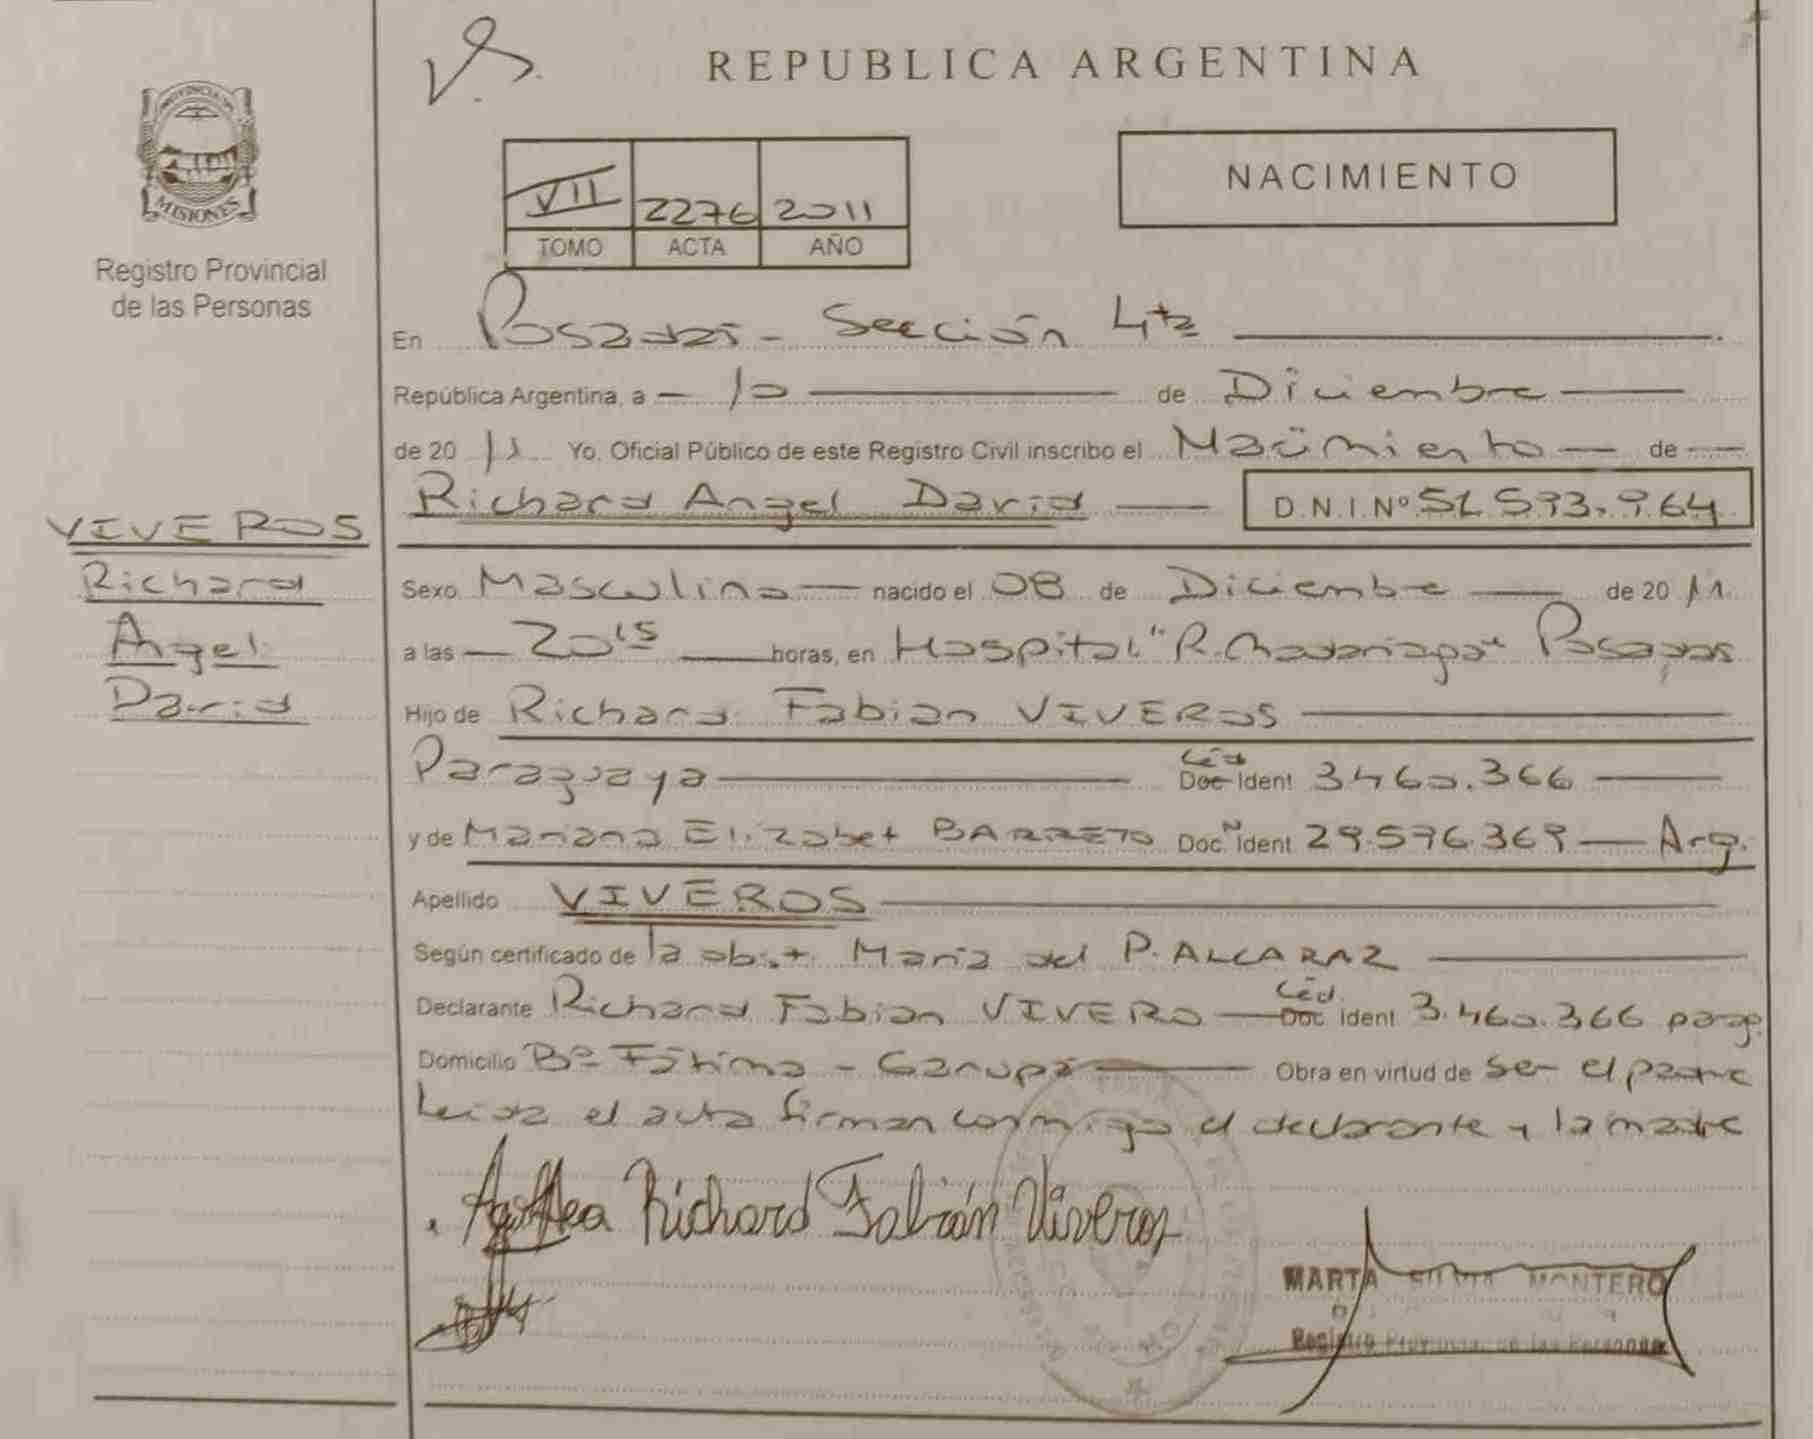 REPUBLICA ARGENTINA
PROVINCIA DE
MISIONES
Registro Provincial
de las Personas
VII 2276 2011
TOMO ACTA AÑO
NACIMIENTO
En Posadas - Sección 4ta
República Argentina, a 10 de Diciembre
de 20 11 Yo, Oficial Público de este Registro Civil inscribo el Nacimiento de
Richard Angel David D.N.I.Nº 51.593.964
VIVEROS
Richard
Angel
David
Sexo Masculino nacido el 08 de Diciembre de 20 11
a las 20 15 horas, en Hospital "R. Madariaga" Posadas
Hijo de Richard Fabian VIVEROS
Paraguaya Céd Doc Ident 3460.366
y de Mariana Elizabet BARRETO Doc. N Ident 29.576.369 Arg.
Apellido VIVEROS
Según certificado de la obst. María del P. ALCARAZ
Declarante Richard Fabian VIVERO Céd. Doc Ident 3.460.366 parag.
Domicilio Bº Fátima - Garupá Obra en virtud de ser el padre
Leida el acta firman conmigo el declarante y la madre
Richard Fabián Viveros
MARTA SILVIA MONTERO
Registro Provincial de las Personas